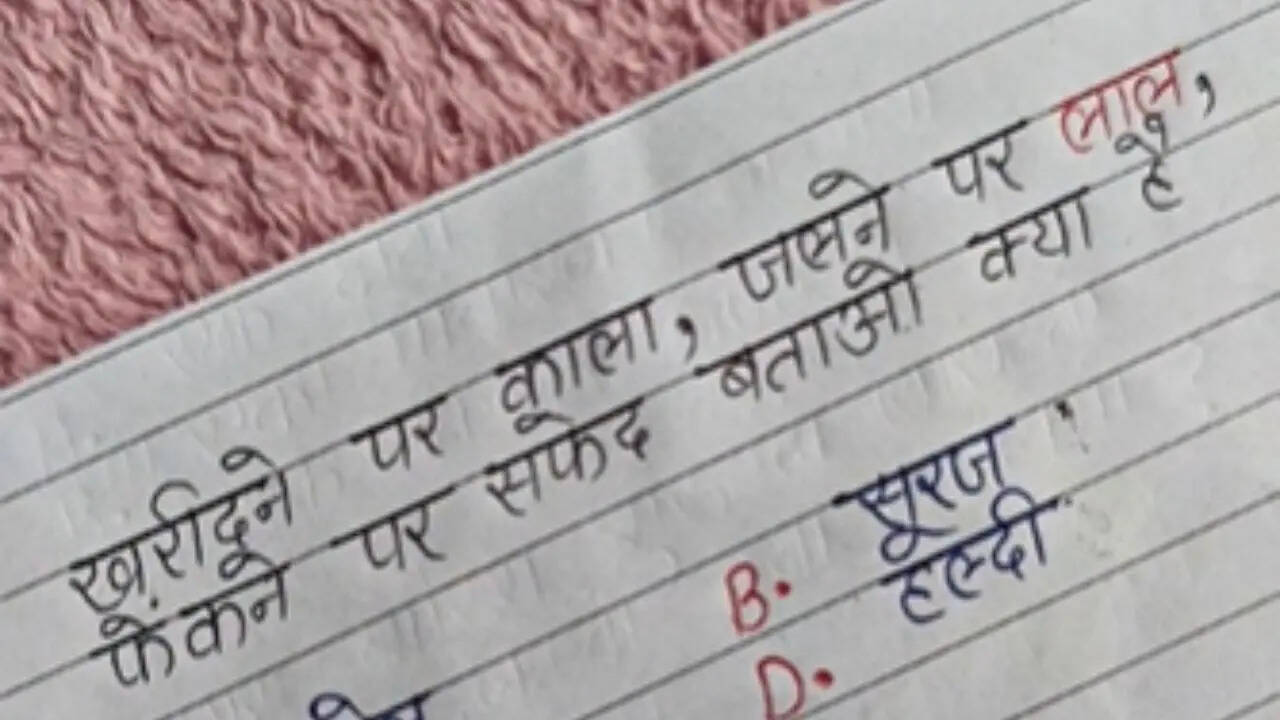 खरीदने पर काला, जलने पर लाल,
फेंकने पर सफेद बताओ क्या है
B. सूरज
D. हल्दी